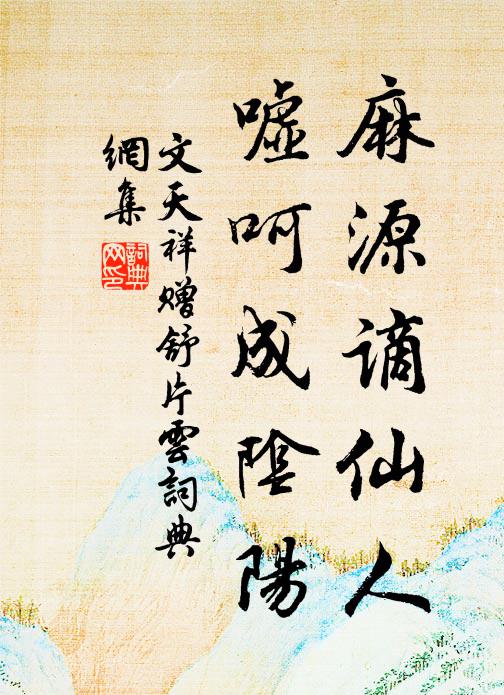 麻源謫仙人
嘘呵成陰陽
文天祥贈舒片雲詞典
網集
詞典网印